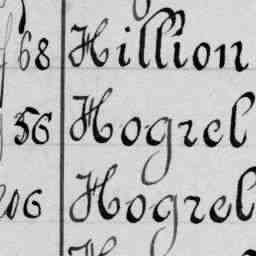 68 Hillion
56 Hogrel
206 Hogrel